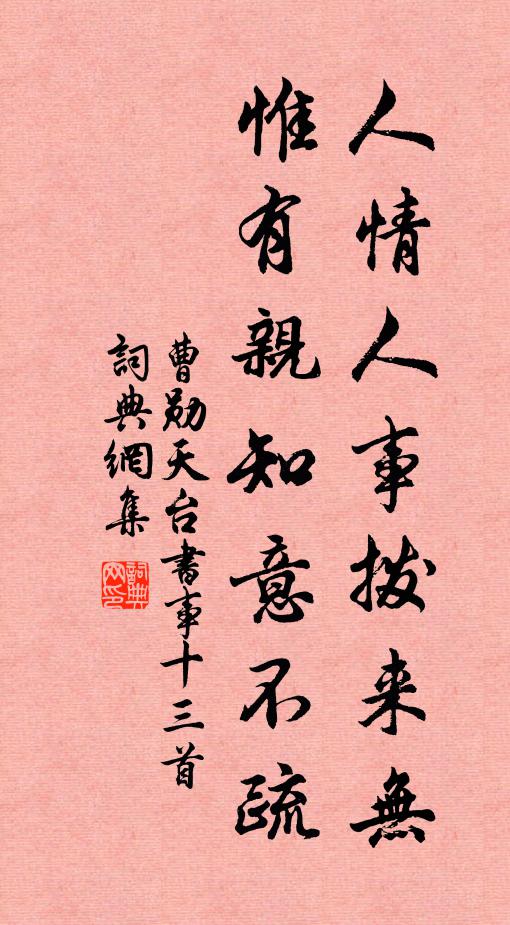 人情人事拨来無
惟有親知意不疏
曹勛天台書事十三首
詞典網集
詞典网印